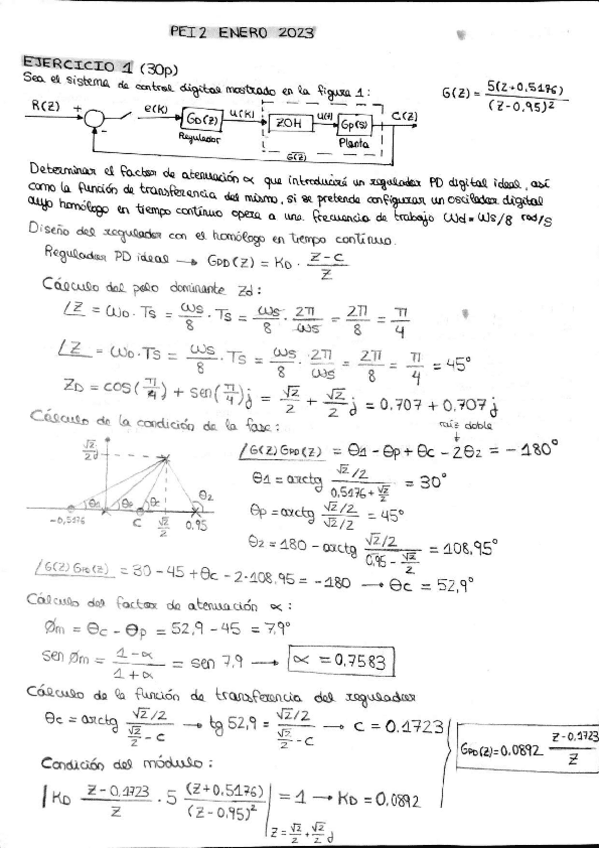 PEI2 ENERO 2023
EJERCICIO 1 (30p)
Sea el sistema de control digital mostrado en la figura 1:
G(z) = 5(z+0,5176) / (z-0,95)²
R(z) + - e(k) GD(z) u(k) ZOH u(t) Gp(s) C(z)
Regulador Planta
G(z)
Determinar el factor de atenuación α que introducirá un regulador PD digital ideal, así
como la función de transferencia del mismo, si se pretende configurar un oscilador digital
cuyo homólogo en tiempo continuo opera a una frecuencia de trabajo ωd = ωs/8 rad/s
Diseño del regulador con el homólogo en tiempo continuo.
Regulador PD ideal → GPD(z) = KD · z-c / z
Cálculo del polo dominante Zd:
∠z = ωD · Ts = ωs/8 · Ts = ωs/8 · 2π/ωs = 2π/8 = π/4
∠z = ωD · Ts = ωs/8 · Ts = ωs/8 · 2π/ωs = 2π/8 = π/4 = 45°
ZD = cos(π/4) + sen(π/4)j = √2/2 + √2/2 j = 0.707 + 0.707j
Cálculo de la condición de la fase:
raíz doble
∠G(z)GPD(z) = θ1 - θp + θc - 2θ2 = -180°
√2/2 j
θ1 θp θc θ2
-0,5176 c √2/2 0.95
θ1 = arctg √2/2 / 0,5176+√2/2 = 30°
θp = arctg √2/2 / √2/2 = 45°
θ2 = 180 - arctg √2/2 / 0,95 - √2/2 = 108,95°
∠G(z)GPD(z) = 30 - 45 + θc - 2·108,95 = -180 → θc = 52,9°
Cálculo del factor de atenuación α:
Øm = θc - θp = 52,9 - 45 = 7,9°
sen Øm = 1-α / 1+α = sen 7,9 → α = 0,7583
Cálculo de la función de transferencia del regulador
θc = arctg √2/2 / √2/2 - c → tg 52,9 = √2/2 / √2/2 - c → c = 0.1723
GPD(z) = 0.0892 z-0.1723 / z
Condición del módulo:
|KD z-0,1723 / z · 5 (z+0,5176) / (z-0,95)²| = 1 → KD = 0,0892
z = √2/2 + √2/2 j